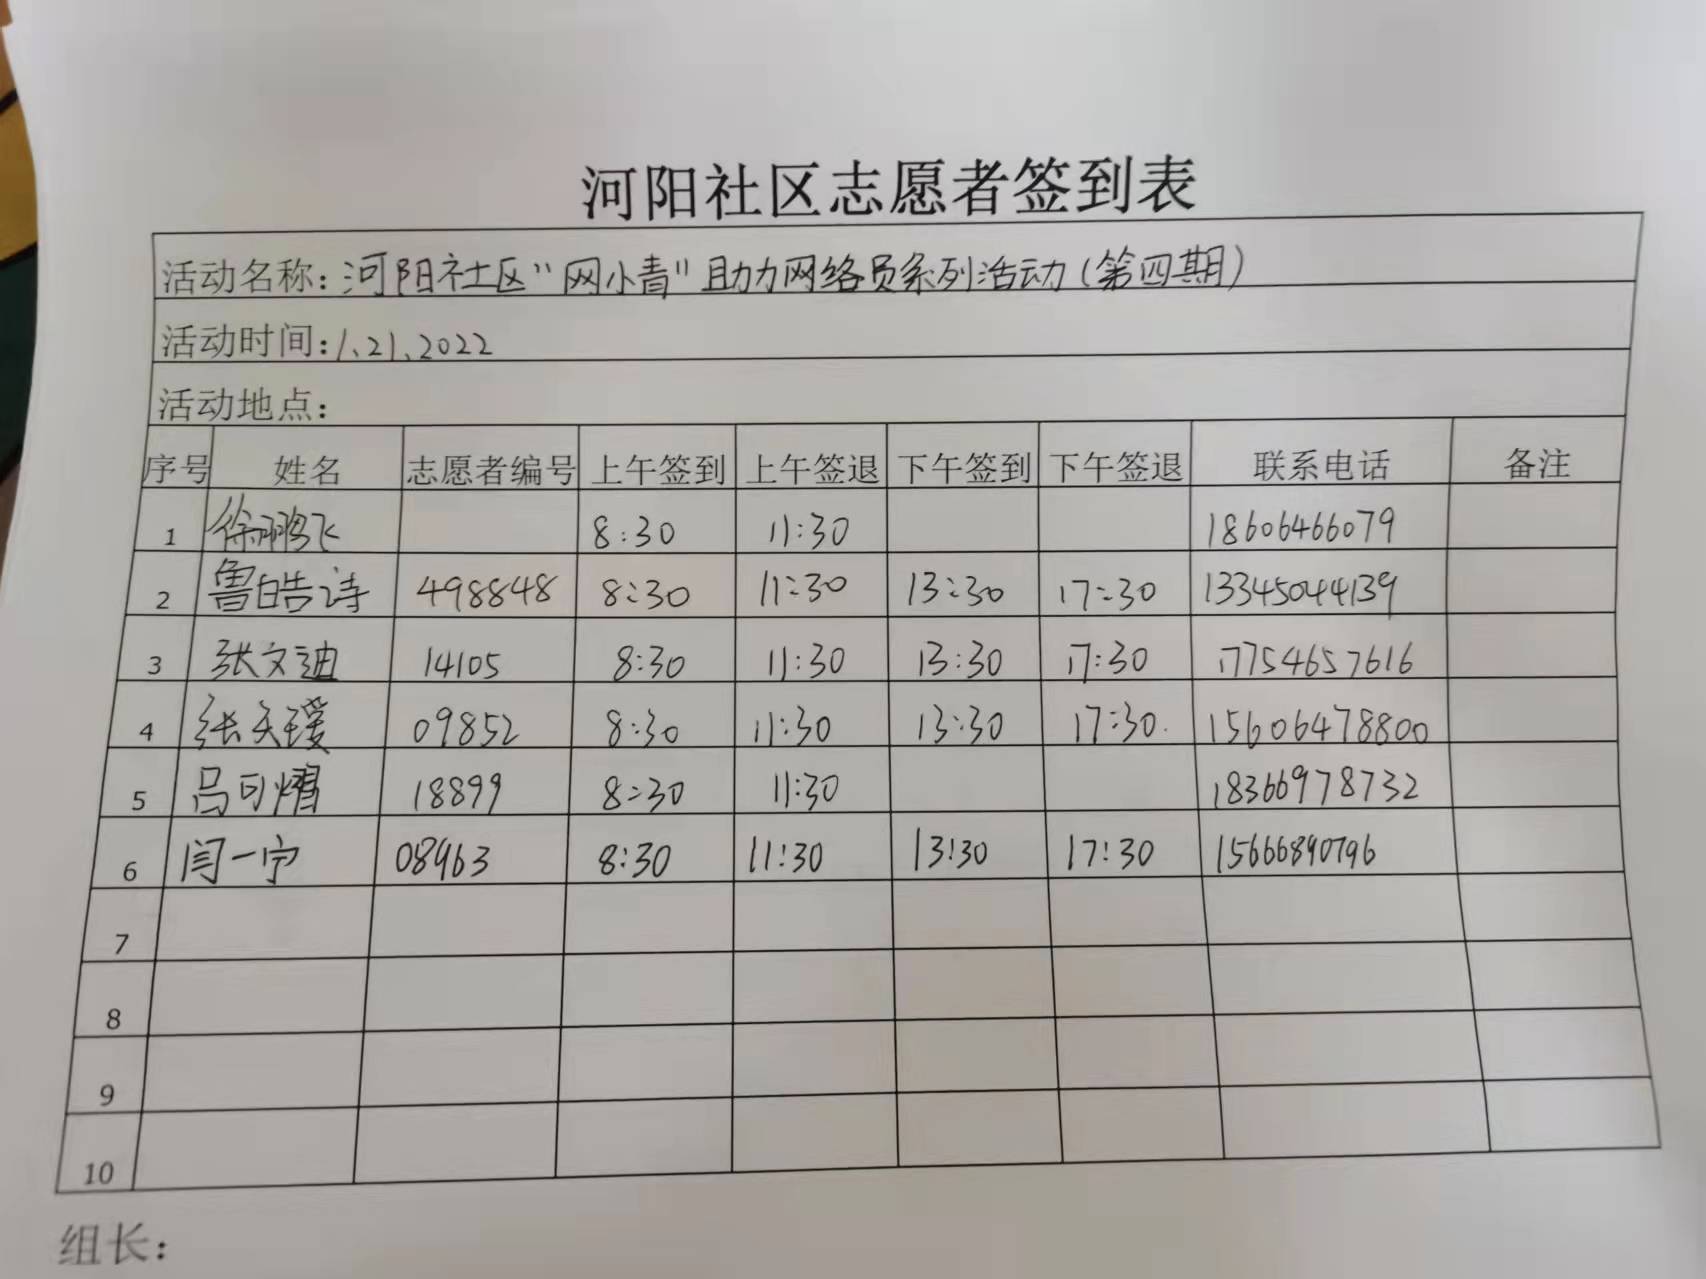 河阳社区志愿者签到表
活动名称：河阳社区“网小青”助力网络员系列活动（第四期）
活动时间：1、21、2022
活动地点：
序号 姓名 志愿者编号 上午签到 上午签退 下午签到 下午签退 联系电话 备注
1 徐鹏飞 8:30 11:30 18606466079
2 鲁皓诗 498848 8:30 11:30 13:30 17:30 13345044139
3 张文迪 14105 8:30 11:30 13:30 17:30 17754657616
4 张天瑷 09852 8:30 11:30 13:30 17:30 15606478800
5 吕可熠 18899 8:30 11:30 18366978732
6 闫一宁 08963 8:30 11:30 13:30 17:30 15666890796
7
8
9
10
组长：